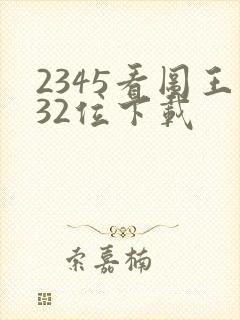 2345看图王
32位下载
索嘉楠